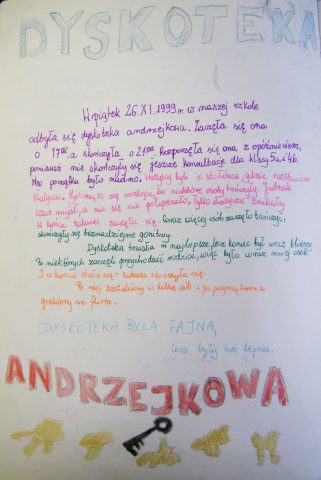 DYSKOTEKA
W piątek 26.XI.1999 r. w naszej szkole
odbyła się dyskoteka andrzejkowa. Zaczęła się ona
o 17⁰⁰, a skończyła o 21⁰⁰. Rozpoczęła się ona z opóźnieniem,
ponieważ nie skończyły się jeszcze konsultacje dla klasy 5 i 4b.
Na początku było nudno. Wszyscy byli w stołówce, gdzie
się rozkręca, bo niektóre osoby tańczyły. Jednak
czas mijał, a nic się nie polepszało, tylko słodycze znikały.
W końcu zabawa zaczęła się. Coraz więcej osób zaczęło tańczyć,
skończyły się beznadziejne gonitwy.
Dyskoteka trwała w najlepsze, lecz koniec był coraz bliższy.
Po niektórych zaczęli przychodzić rodzice, więc było coraz mniej osób.
I w końcu stało się - zabawa skończyła się.
Po niej zostaliśmy w kilka osób i po
graliśmy we flirta.
DYSKOTEKA BYŁA FAJNA,
lecz były też lepsze.
ANDRZEJKOWA